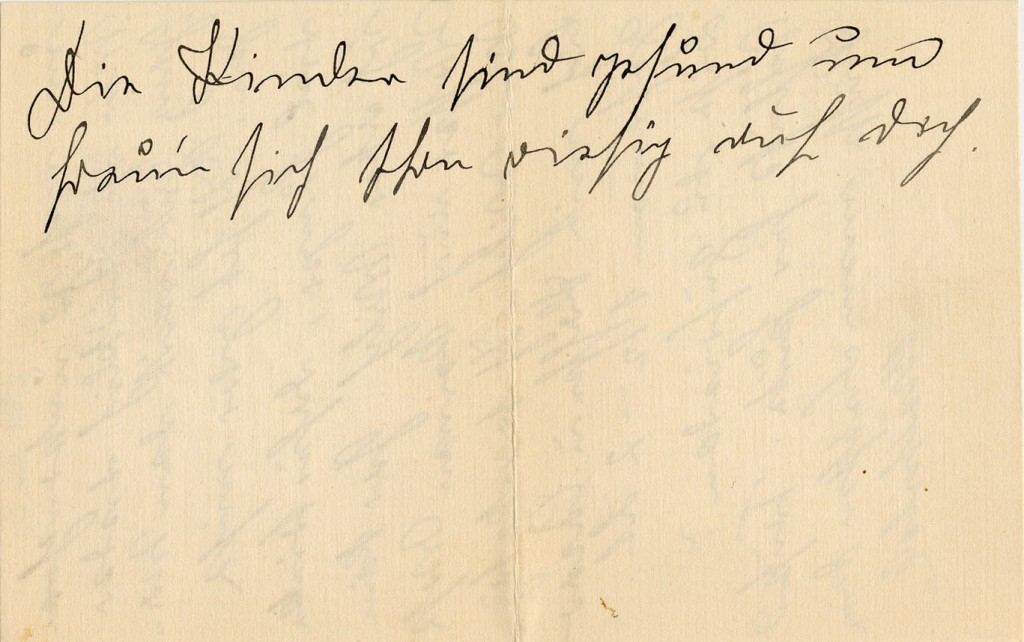 Die Kinder sind gesund und
freun sich schon riesig auf dich.